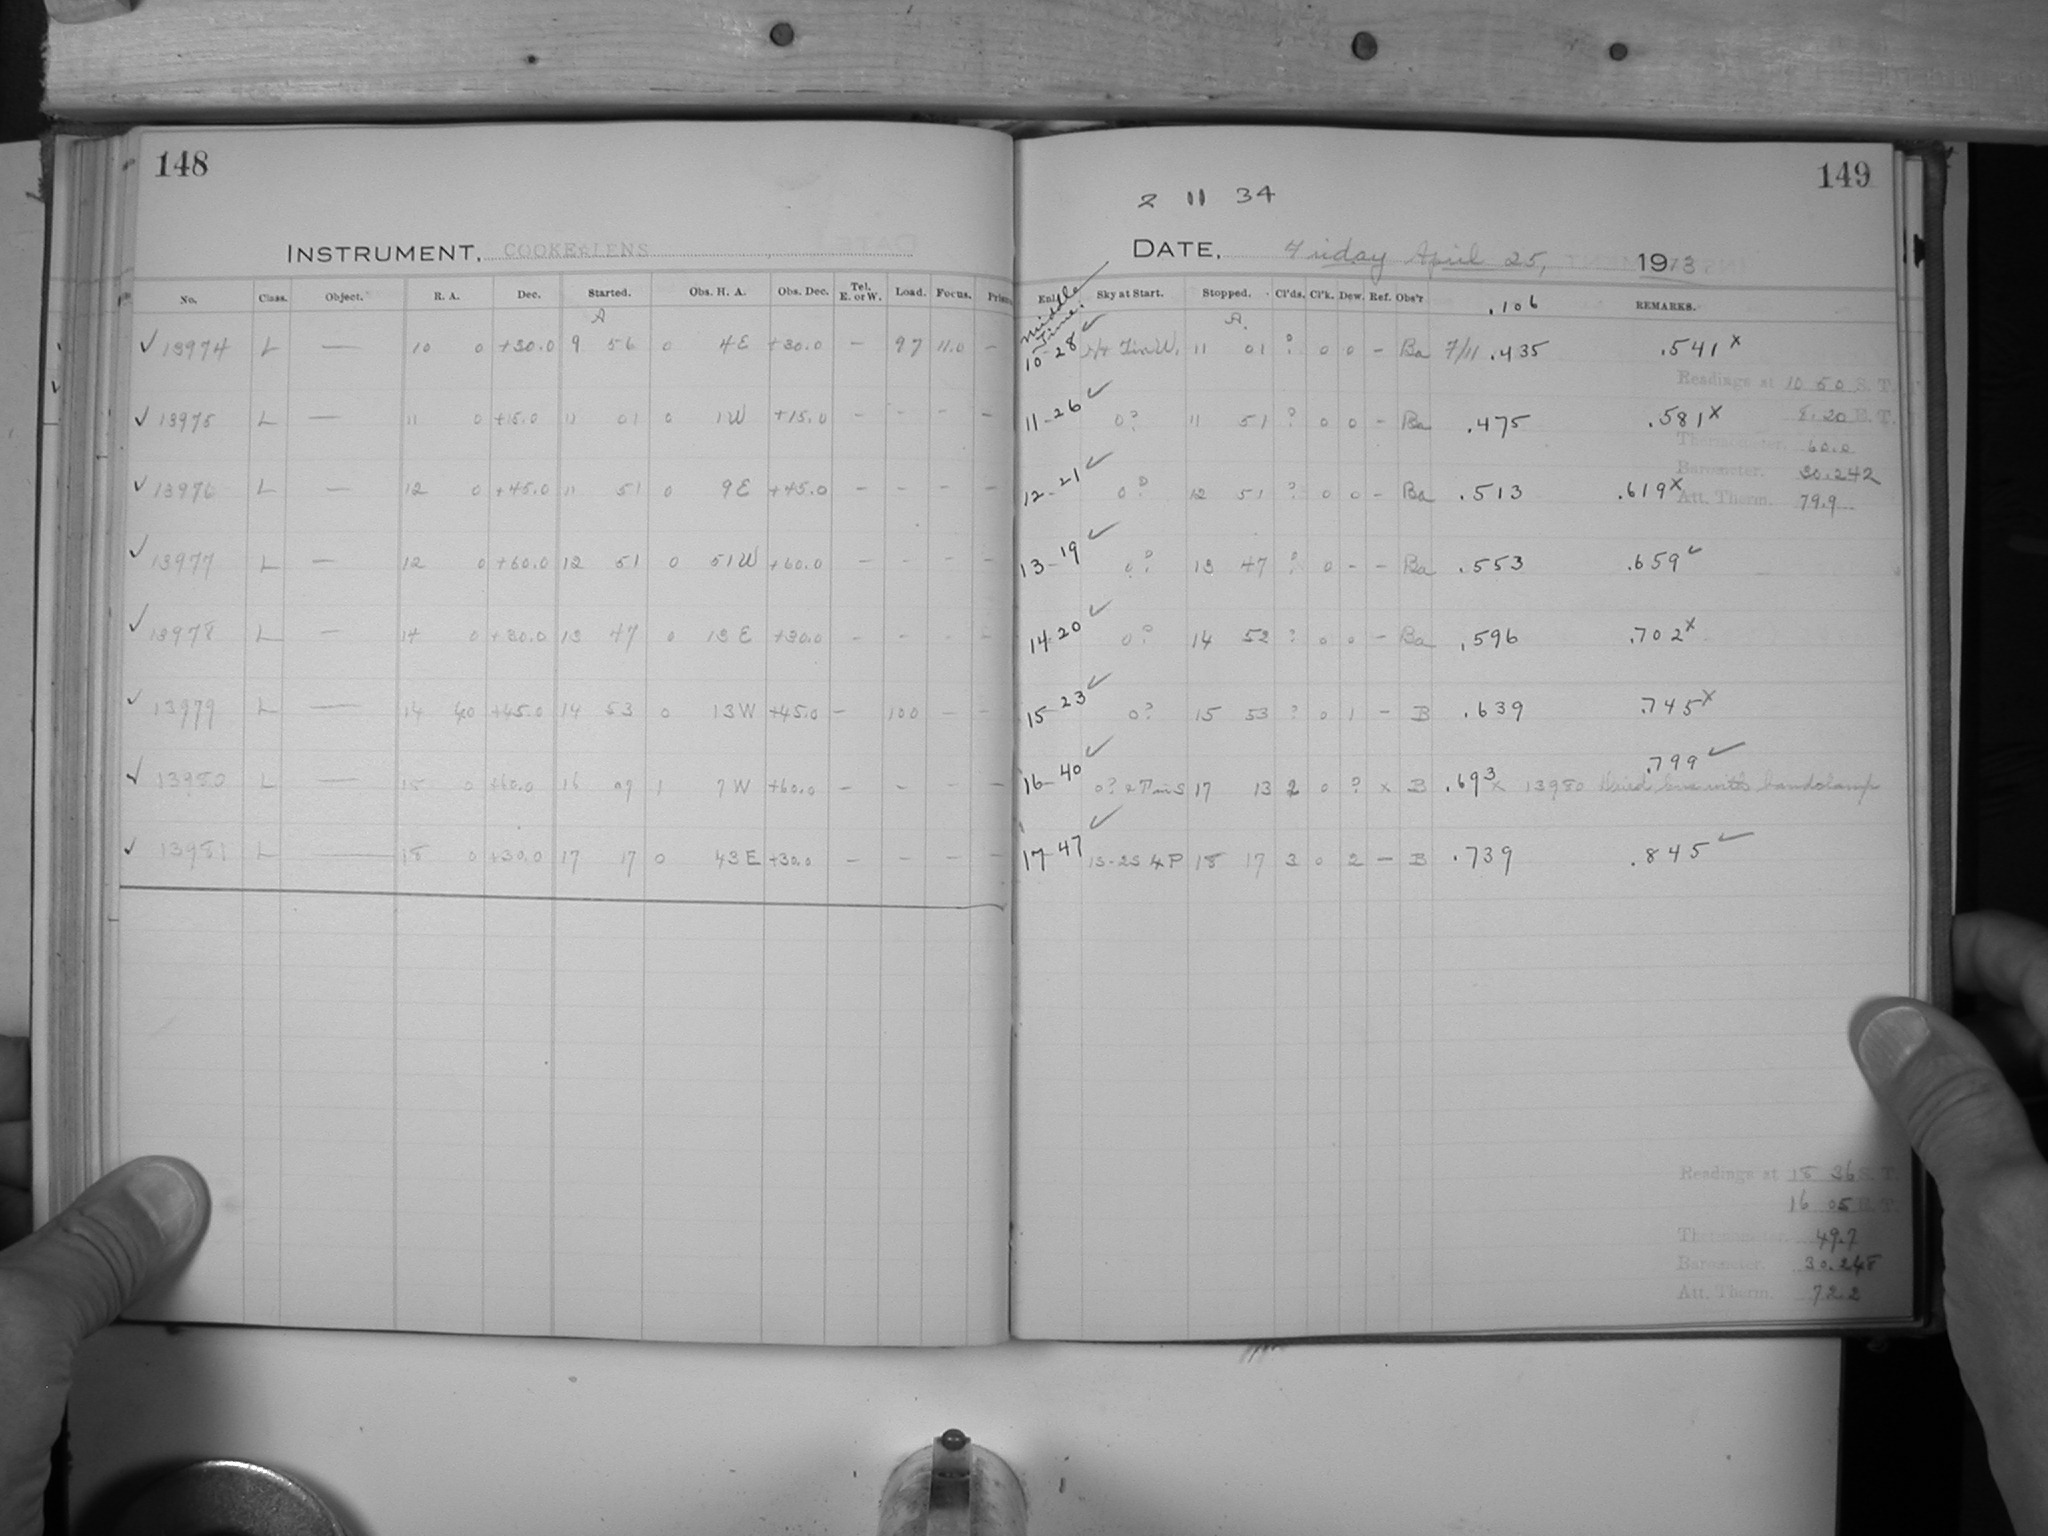 148
INSTRUMENT, COOKE LENS
No. Class. Object. R. A. Dec. Started. Obs. H. A. Obs. Dec. Tel. E. or W. Load. Focus.
A
✓ 13974 L — 10 0 +30.0 9 56 0 4E +30.0 — 97 11.0 —
✓ 13975 L — 11 0 +15.0 11 01 0 1W +15.0 — — — —
✓ 13976 L — 12 0 +45.0 11 51 0 9E +45.0 — — — —
✓ 13977 L — 12 0 +60.0 12 51 0 51W +60.0 — — — —
✓ 13978 L — 14 0 +30.0 13 47 0 13E +30.0 — — — —
✓ 13979 L — 14 40 +45.0 14 53 0 13W +45.0 — 100 — —
✓ 13980 L — 15 0 +60.0 16 07 1 7W +60.0 — — — —
✓ 13981 L — 18 0 +30.0 17 17 0 43E +30.0 — — — —
149
2 11 34
DATE, Friday April 25, 1913
Middle Time.
Sky at Start. Stopped. Cl'ds. Cl'k. Dew. Ref. Obs'r .106 REMARKS.
A.
10-28 ✓ TinW. 11 01 ? 0 0 – Ba 7/11 .435 .541 x
Readings at 10 50 S. T.
11-26 ✓ 0? 11 51 ? 0 0 – Ba .475 .581 x
8.20 E. T.
Thermometer. 60.0
Barometer. 30.242
12-21 ✓ 0? 12 51 ? 0 0 – Ba .513 .619 x
Att. Therm. 79.9
13-19 ✓ 0? 13 47 ? 0 – – Ba .553 .659 ✓
14-20 ✓ 0? 14 52 ? 0 0 – Ba .596 .702 x
15-23 ✓ 0? 15 53 ? 0 1 – B .639 .745 x
16-40 ✓ 0? 2TinS 17 13 2 0 ? x B .693 .799 ✓
x 13980 with handslamp
17-47 ✓ 1S-2S 4P 18 17 3 0 2 – B .739 .845 ✓
Readings at 18 36 S. T.
16 05 E. T.
Thermometer. 49.7
Barometer. 30.248
Att. Therm. 72.2